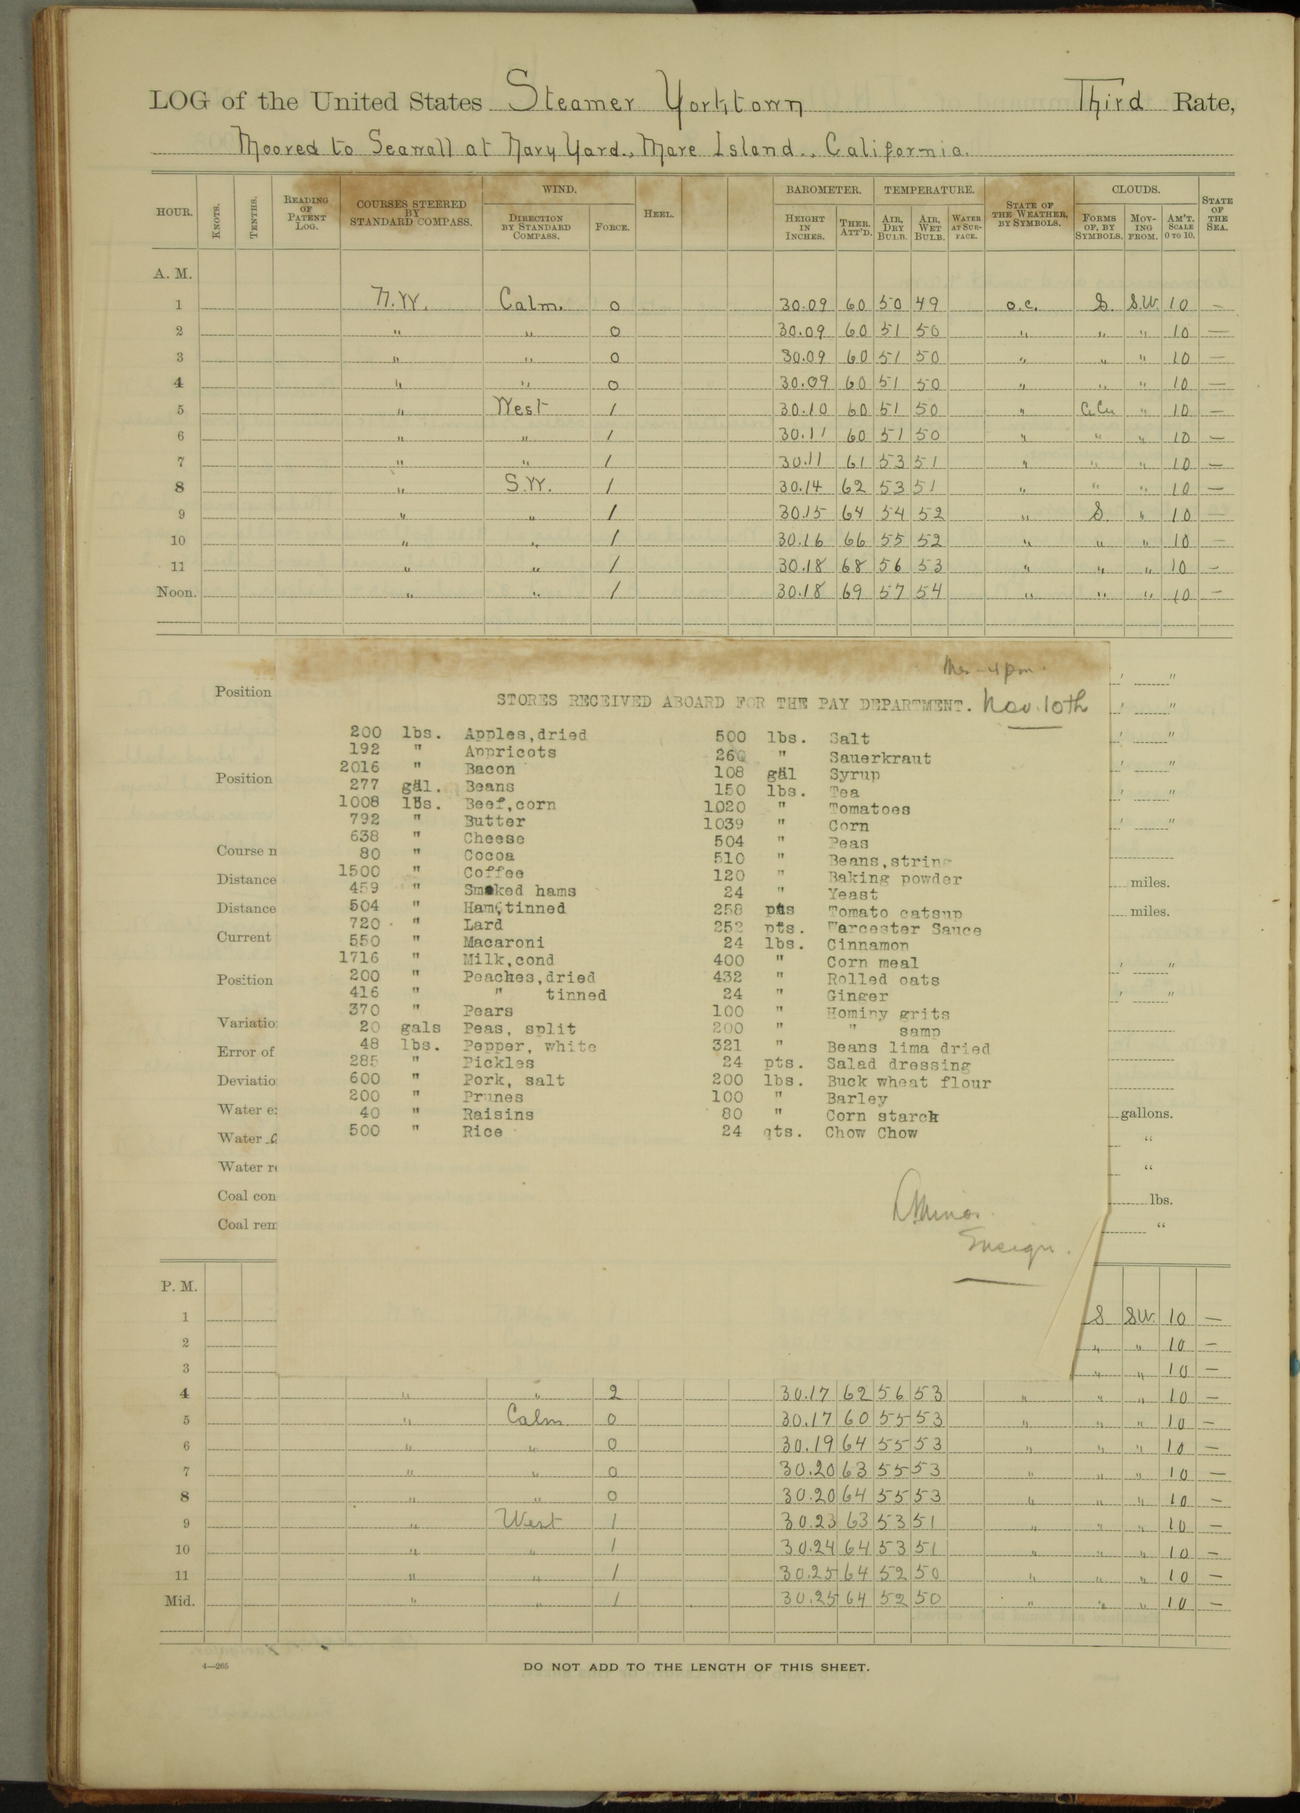 LOG of the United States Steamer Yorktown Third Rate,
Moored to Seawall at Navy Yard, Mare Island, California.
HOUR. KNOTS. TENTHS. READING OF PATENT LOG. COURSES STEERED BY STANDARD COMPASS. WIND. DIRECTION BY STANDARD COMPASS. FORCE. HEEL. BAROMETER. HEIGHT IN INCHES. THER. ATT'D. TEMPERATURE. AIR, DRY BULB. AIR, WET BULB. WATER AT SURFACE. STATE OF THE WEATHER, BY SYMBOLS. CLOUDS. FORMS OF, BY SYMBOLS. MOVING FROM. AM'T. SCALE 0 TO 10. STATE OF THE SEA.
A. M.
1 N.W. Calm. 0 30.09 60 50 49 o.c. S. S.W. 10 —
2 " " 0 30.09 60 51 50 " " " 10 —
3 " " 0 30.09 60 51 50 " " " 10 —
4 " " 0 30.09 60 51 50 " " " 10 —
5 " West 1 30.10 60 51 50 " " 10 —
6 " " 1 30.11 60 51 50 " " " 10 —
7 " " 1 30.11 61 53 51 " " " 10 —
8 " S.W. 1 30.14 62 53 51 " " " 10 —
9 " " 1 30.15 64 54 52 " S. " 10 —
10 " " 1 30.16 66 55 52 " " " 10 —
11 " " 1 30.18 68 56 53 " " " 10 —
Noon. " " 1 30.18 69 57 54 " " " 10 —
4 pm.
STORES RECEIVED ABOARD FOR THE PAY DEPARTMENT. Nov. 10th
200 lbs. Apples,dried 500 lbs. Salt
192 " Appricots 260 " Sauerkraut
2016 " Bacon 108 gal Syrup
277 gal. Beans 150 lbs. Tea
1008 lbs. Beef,corn 1020 " Tomatoes
792 " Butter 1039 " Corn
638 " Cheese 504 " Peas
80 " Cocoa 510 " Beans,string
1500 " Coffee 120 " Baking powder
459 " Smoked hams 24 " Yeast
504 " Ham,tinned 258 pts Tomato catsup
720 " Lard 252 pts. Warcester Sauce
550 " Macaroni 24 lbs. Cinnamon
1716 " Milk,cond 400 " Corn meal
200 " Peaches,dried 432 " Rolled oats
416 " " tinned 24 " Ginger
370 " Pears 100 " Hominy grits
20 gals Peas, split 200 " " samp
48 lbs. Pepper, white 321 " Beans lima dried
285 " Pickles 24 pts. Salad dressing
600 " Pork, salt 200 lbs. Buck wheat flour
200 " Prunes 100 " Barley
40 " Raisins 80 " Corn starck
500 " Rice 24 qts. Chow Chow
Ensign.
Position
Position
Course
Distance miles.
Distance miles.
Current
Position
Variatio
Error of
Deviatio
Water gallons.
Water "
Water "
Coal con lbs.
Coal rem "
P. M.
1 S SW. 10 —
2 " " 10 —
3 " " 10 —
4 " " 2 30.17 62 56 53 " " " 10 —
5 " Calm 0 30.17 60 55 53 " " " 10 —
6 " " 0 30.19 64 55 53 " " " 10 —
7 " " 0 30.20 63 55 53 " " " 10 —
8 " " 0 30.20 64 55 53 " " " 10 —
9 " West 1 30.23 63 53 51 " " " 10 —
10 " " 1 30.24 64 53 51 " " " 10 —
11 " " 1 30.25 64 52 50 " " " 10 —
Mid. " " 1 30.25 64 52 50 " " " 10 —
4—265
DO NOT ADD TO THE LENGTH OF THIS SHEET.